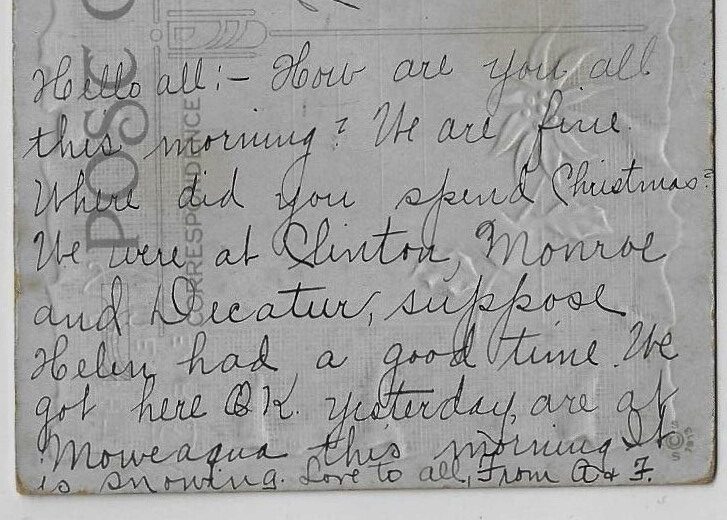 Hello all:- How are you all
this morning? We are fine.
Where did you spend Christmas?
We were at Clinton, Monroe
and Decatur, suppose
Helen had a good time. We
got here O.K. yesterday, are at
Moweaqua this morning It
is snowing. Love to all, From A & F.
POST C
CORRESPONDENCE